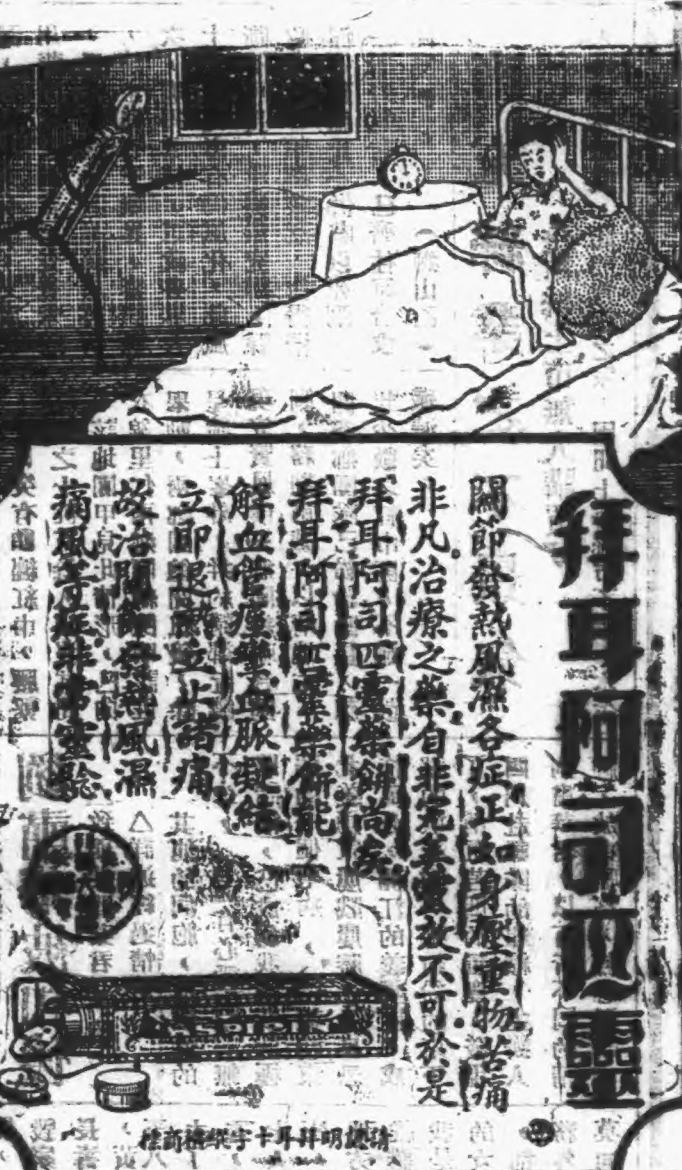 拜耳阿司匹靈
關節發熱風濕各症正如身壓重物苦痛
非凡治療之藥自非完美靈效不可於是
拜耳阿司匹靈藥餅尚矣
拜耳阿司匹靈藥餅能
解血管痙攣血脈凝結
立即退熱立止諸痛
故治關節發熱風濕
痛風等症非常靈驗
ASPIRIN
請認明拜耳十字紙商標